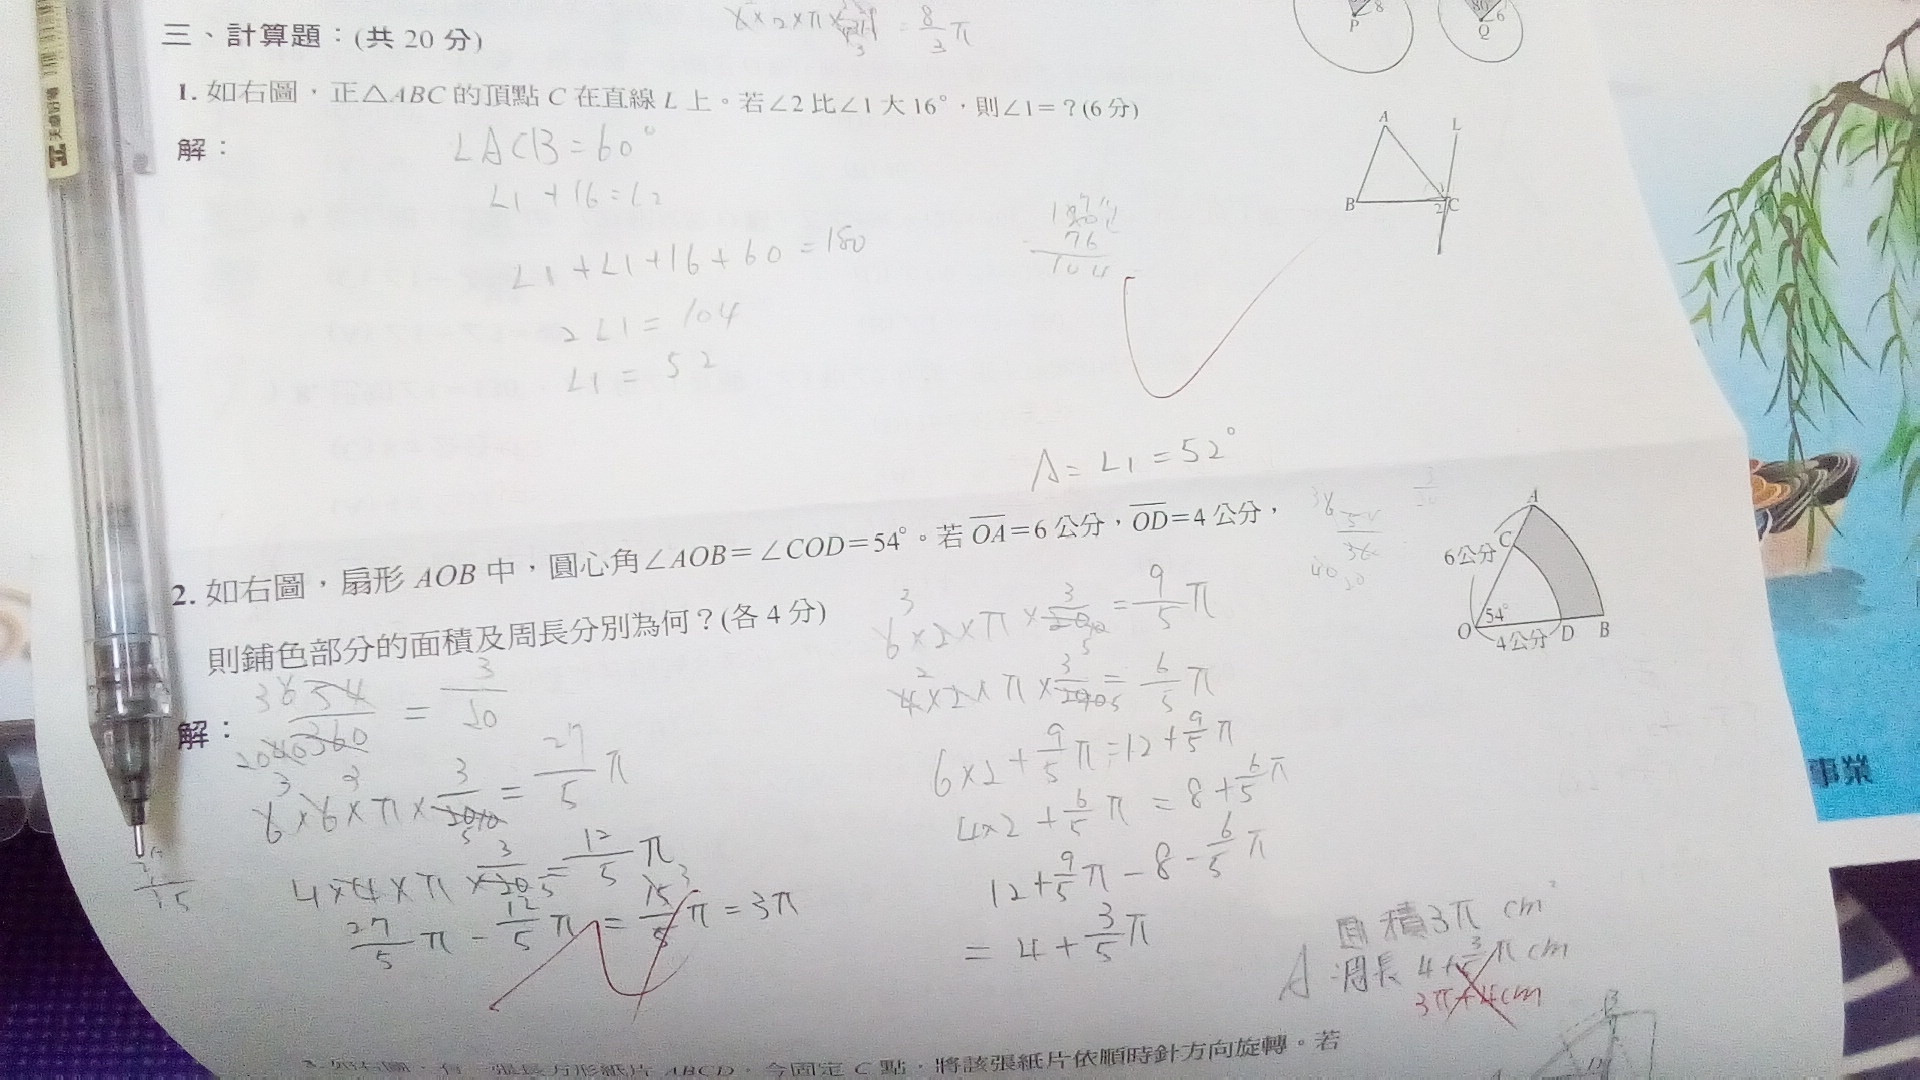 6×2×π× = 8/3 π
P 8
80° 6 Q
三、計算題：(共 20 分)
1. 如右圖，正△ABC 的頂點 C 在直線 L 上。若∠2 比∠1 大 16°，則∠1=？(6 分)
解：
∠ACB=60°
∠1+16=∠2
∠1+∠1+16+60=180
2∠1=104
∠1=52
180
76
104
A=∠1=52°
A
L
B
1
2
C
2. 如右圖，扇形 AOB 中，圓心角∠AOB=∠COD=54°。若 OA=6 公分，OD=4 公分，
則鋪色部分的面積及周長分別為何？(各 4 分)
解：
54/360 = 3/20
6×6×π×3/20 = 27/5 π
4×4×π×3/20 = 12/5 π
27/5 π - 12/5 π = 15/5 π = 3π
6×2×π×3/20 = 9/5 π
4×2×π×3/20 = 6/5 π
6×2+9/5 π=12+9/5 π
4×2+6/5 π=8+6/5 π
12+9/5 π-8-6/5 π
=4+3/5 π
A
6公分
C
54°
O
4公分
D
B
A 面積3π cm²
周長 4+3/5 π cm
3π+4cm
3. 如右圖，有一張長方形紙片 ABCD，今固定 C 點，將該張紙片依順時針方向旋轉。若
B
D
事業